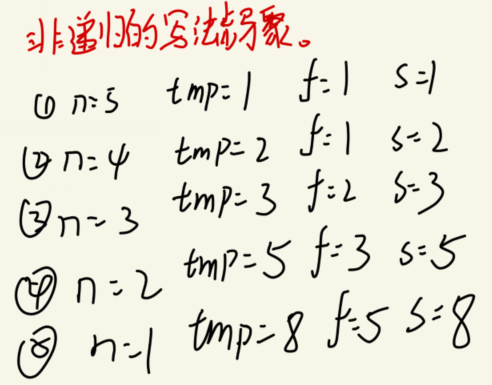 非递归的写法步骤。
① n=5 tmp=1 f=1 s=1
② n=4 tmp=2 f=1 s=2
③ n=3 tmp=3 f=2 s=3
④ n=2 tmp=5 f=3 s=5
⑤ n=1 tmp=8 f=5 s=8